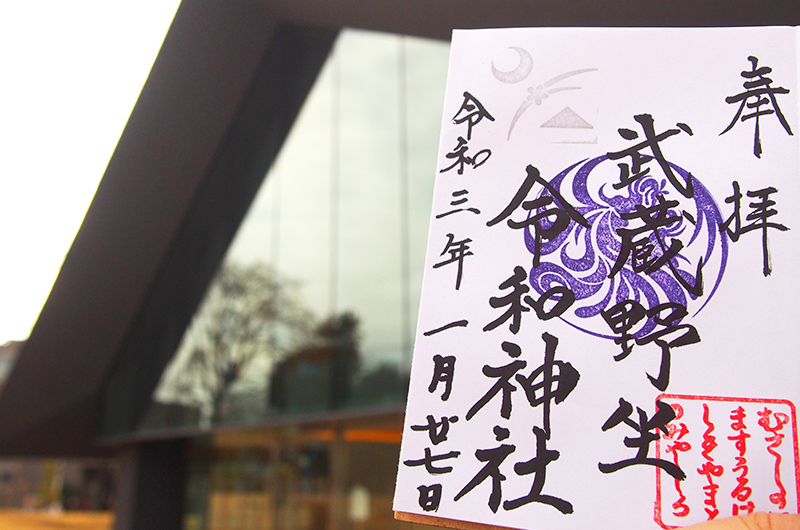 奉拝
武蔵野坐
令和神社
令和三年 一月廿七日
むさしの
ますうるは
しきやまと
のみやしろ